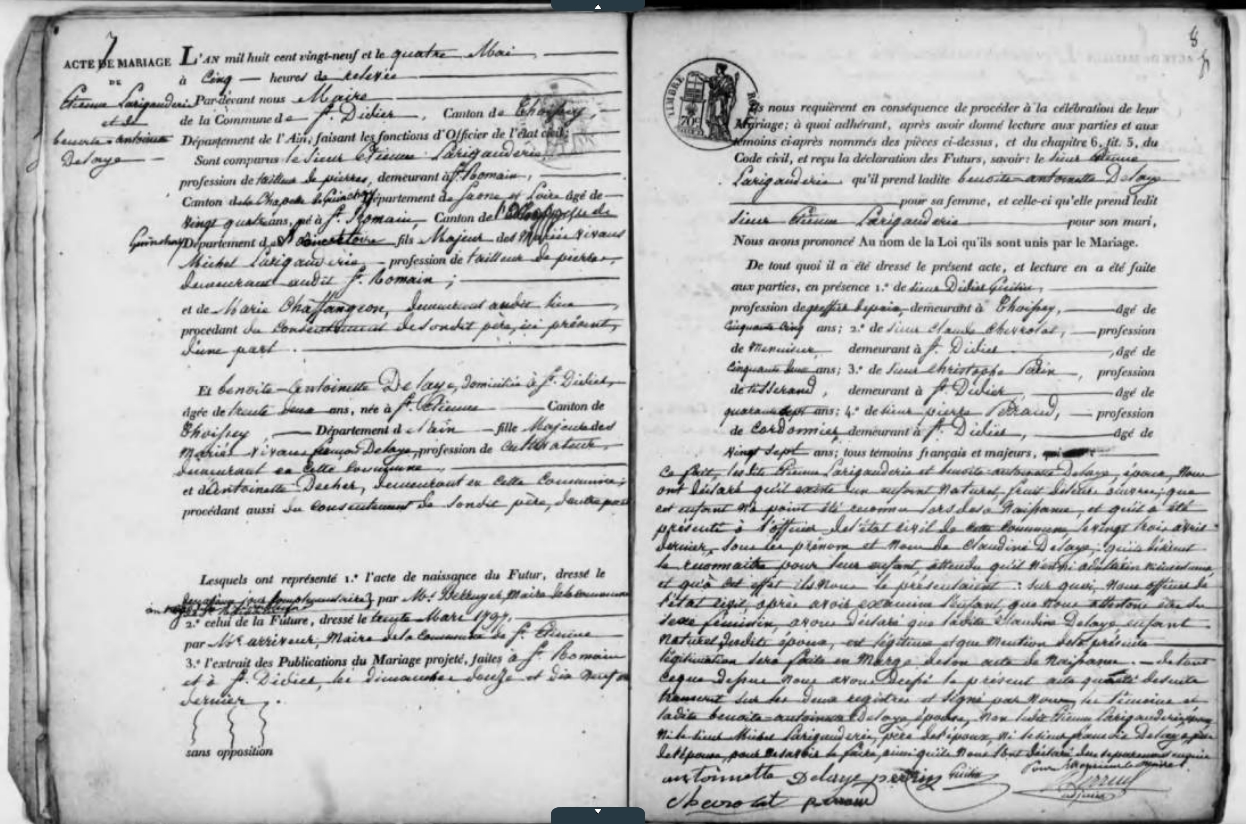 7
ACTE DE MARIAGE
DE
Etienne Larigauderie
et de
benoite antoinette
Delaye
L'AN mil huit cent vingt-neuf et le quatre Mai
à Cinq heures de relevée
Par-devant nous Maire
de la Commune de St. Didier, Canton de Thoissey,
Département de l'Ain, faisant les fonctions d'Officier de l'état civil;
Sont comparus le Sieur Etienne Larigauderie
profession de tailleur de pierres, demeurant à St. Romain,
Canton de la Chapelle de Guinchay Département de Saone et Loire âgé de
vingt quatre ans, né à St. Romain Canton de la Chapelle de
Guinchay Département de Saone et Loire fils Majeur des Mariés vivans
Michel Larigauderie, profession de tailleur de pierres,
demeurant audit St. Romain;
et de Marie Chaffangeon, demeurant audit lieu
procédant du consentement de sondit père, ici présent,
d'une part
Et benoite-antoinette Delaye, domiciliée à St. Didier,
âgée de trente deux ans, née à St. Etienne Canton de
Thoissey, Département de l'Ain fille Majeure des
Mariés vivans Delaye, profession de Cultivateur,
demeurant en cette commune,
et d'antoinette Decher, demeurant en cette Commune,
procédant aussi du consentement de sondit père, d'autre part
Lesquels ont représenté 1.° l'acte de naissance du Futur, dressé le
par Mr. Maire de la commune
2.° celui de la Future, dressé le trente Mars 1797,
par Mr. arriveur, Maire de la Commune de St. Etienne
3.° l'extrait des Publications du Mariage projeté, faites à St. Romain
et à St. Didier, les dimanches douze et dix neuf
dernier.
sans opposition
8
TIMBRE ROYAL
70c
Ils nous requièrent en conséquence de procéder à la célébration de leur
Mariage; à quoi adhérant, après avoir donné lecture aux parties et aux
témoins ci-après nommés des pièces ci-dessus, et du chapitre 6, tit. 5, du
Code civil, et reçu la déclaration des Futurs, savoir: le sieur Etienne
Larigauderie qu'il prend ladite benoite-antoinette Delaye
pour sa femme, et celle-ci qu'elle prend ledit
sieur Etienne Larigauderie pour son mari,
Nous avons prononcé Au nom de la Loi qu'ils sont unis par le Mariage.
De tout quoi il a été dressé le présent acte, et lecture en a été faite
aux parties, en présence 1.° de sieur Didier
profession de greffier de paix, demeurant à Thoissey, âgé de
cinquante cinq ans; 2.° de sieur Claude Chevrolat, profession
de Menuisier, demeurant à St. Didier, âgé de
cinquante deux ans; 3.° de sieur Christophe profession
de tisserand, demeurant à St. Didier, âgé de
quarante sept ans; 4.° de sieur pierre Perraud, profession
de Cordonnier, demeurant à St. Didier, âgé de
vingt sept ans; tous témoins français et majeurs,
Ce fait, lesdits Etienne Larigauderie et benoite antoinette Delaye, époux, Nous
ont déclaré qu'il existe un enfant Naturel fruit de leurs œuvres; que
cet enfant n'a point été reconnu lors de sa Naissance, et qu'il a été
présenté à l'officier de l'état civil de cette Commune, le vingt trois avril
dernier, sous les prénom et Nom de Claudine Delaye; qu'ils désirent
le reconnaitre pour leur enfant
et qu'à cet effet ils Nous le présentaient: sur quoi, Nous officier de
l'état civil après avoir examiné l'enfant, que Nous attestons être du
sexe féminin, avons déclaré que ladite Claudine Delaye enfant
Naturel desdits époux, est légitime et que Mention de la présente
légitimation sera faite en Marge de son acte de Naissance. De tout
ce que dessus Nous avons dressé le présent acte
sur les deux registres et signé par Nous, les témoins et
ladite benoite-antoinette Delaye épouse, Non ledit Etienne Larigauderie, époux,
Ni le sieur Michel Larigauderie, père de l'époux, Ni le sieur Delaye père
de l'épouse, pour ne savoir le faire, ainsi qu'ils Nous l'ont déclaré
antoinette Delaye
Chevrolat perraud